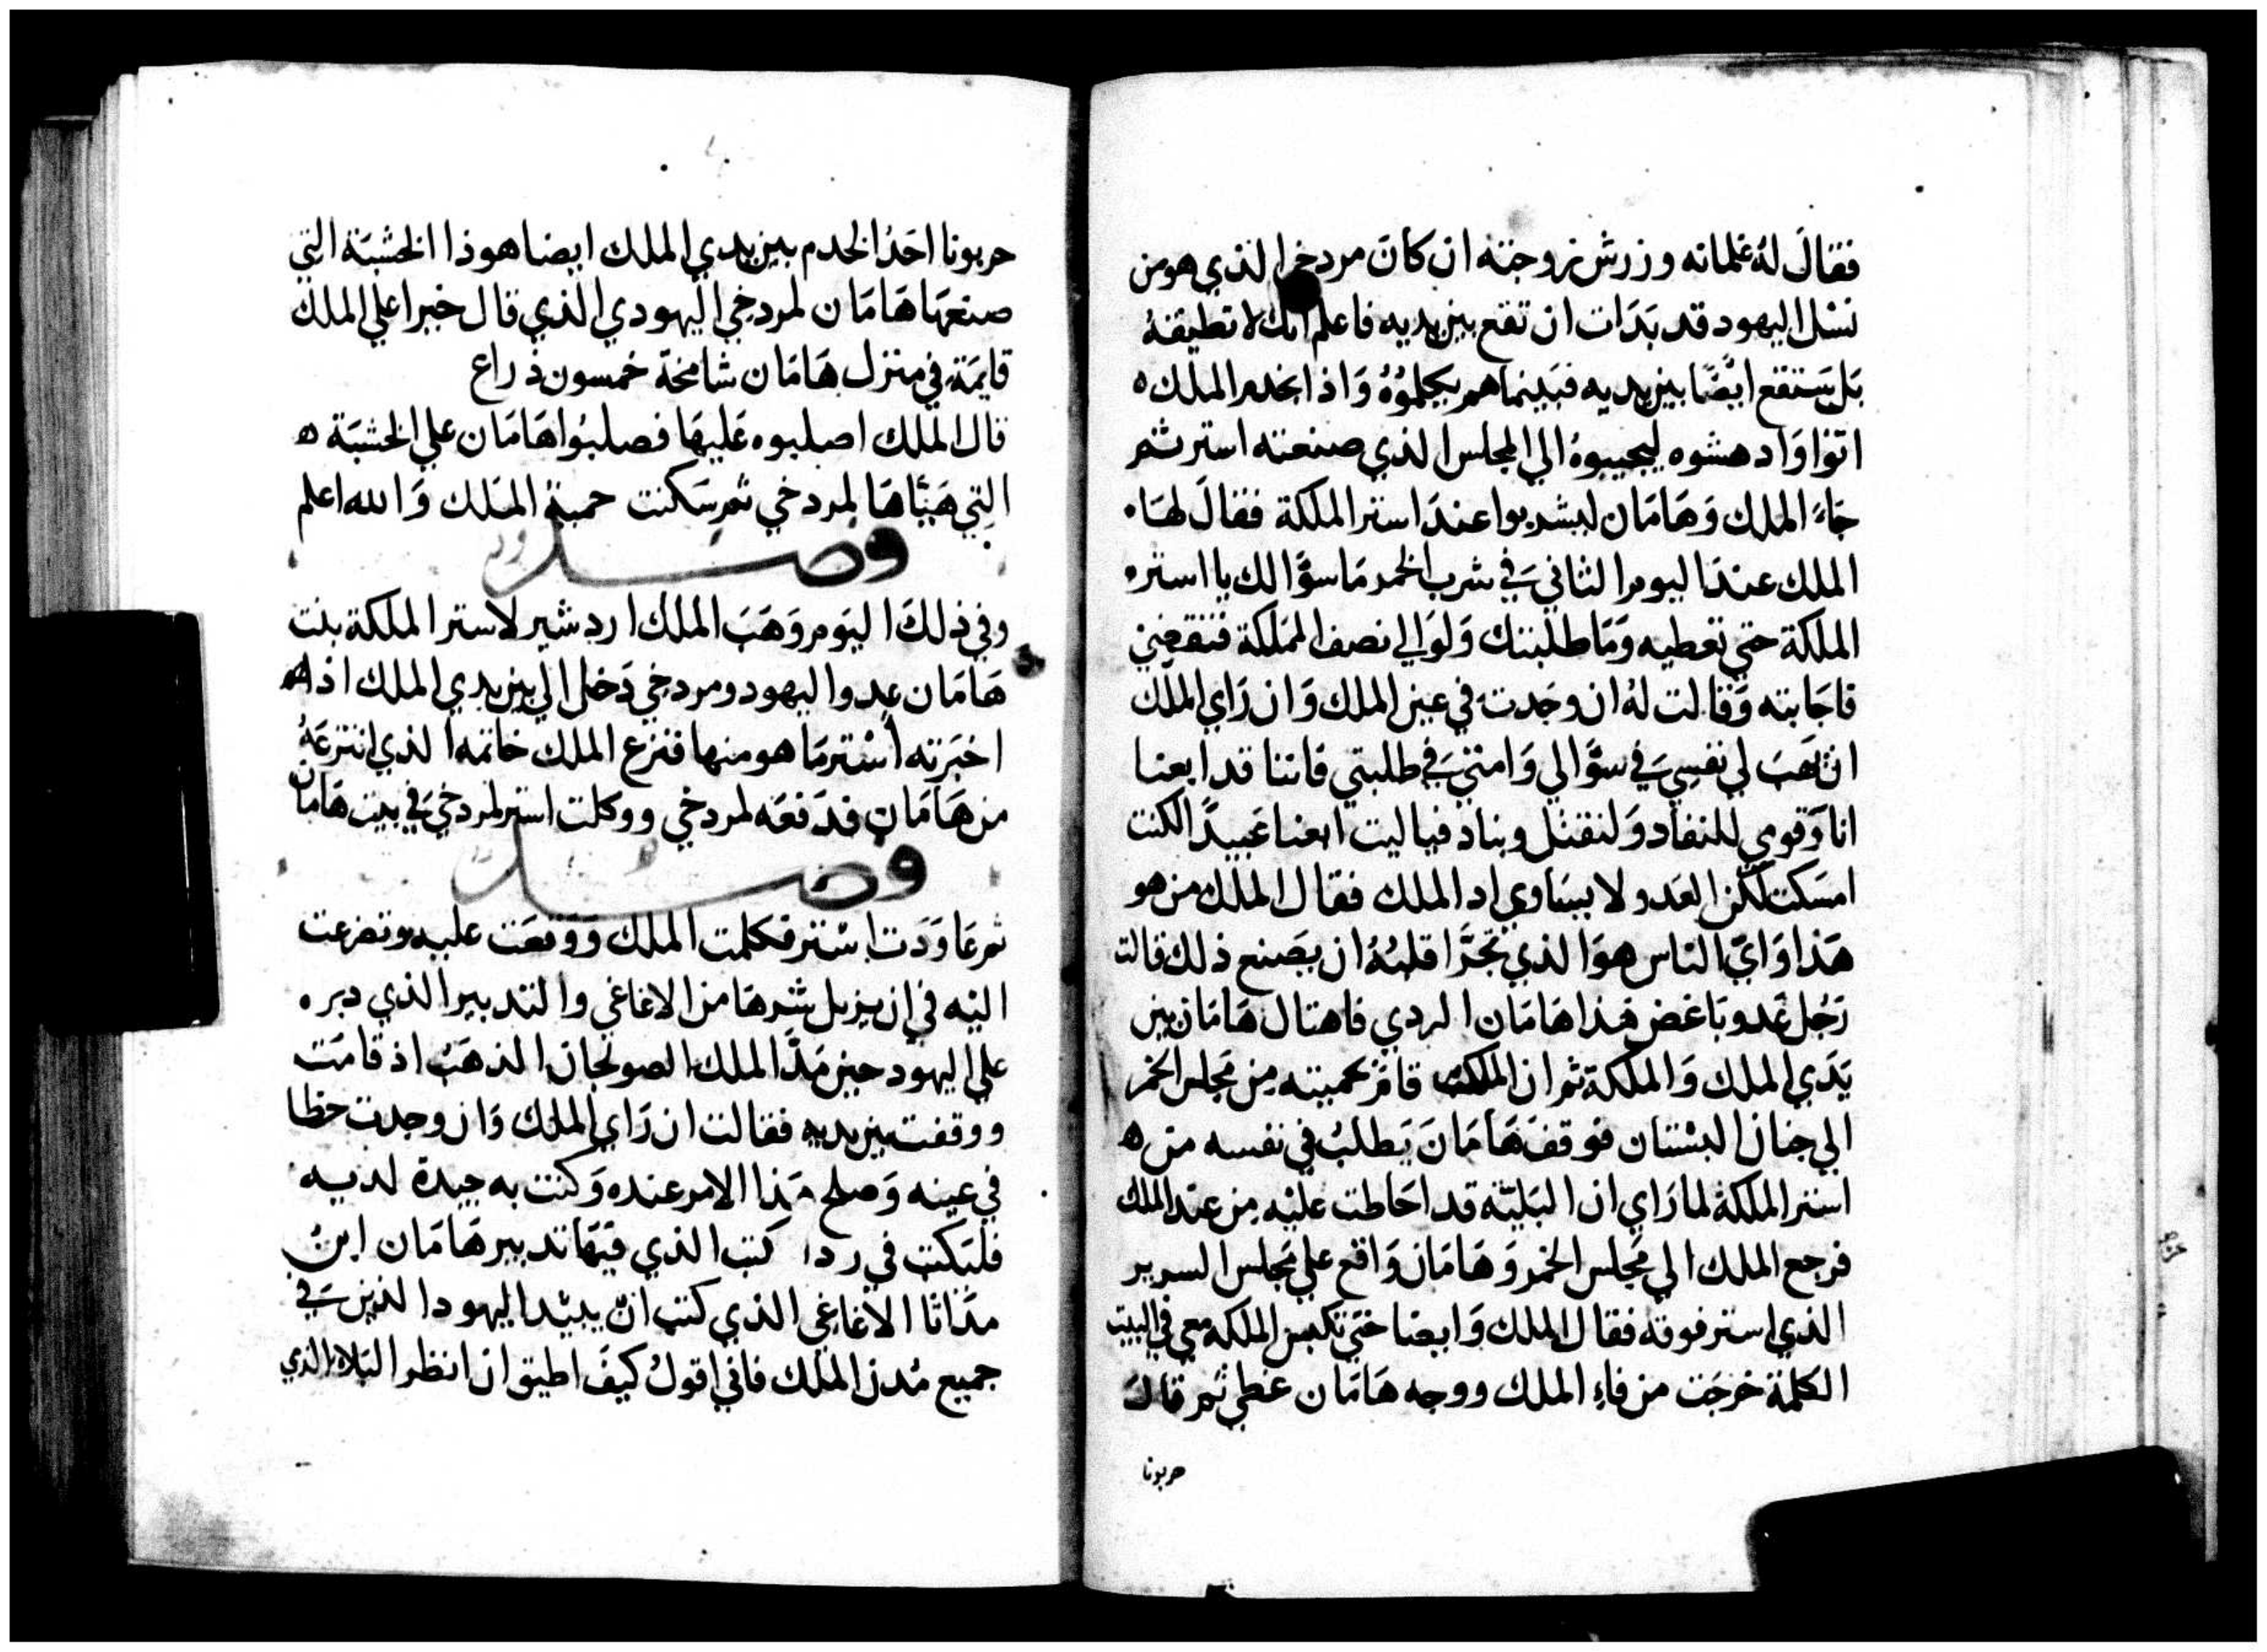 فقالَ لهُ غلمانه وزرش زوجته ان كانَ مردخي الذي هو من
نسل اليهود قد بَدَات ان تقع بين يديه فاعلم انك لا تطيقهُ
بَل ستقع ايضًا بين يديه فبَينما هم يكلموُهُ وَاذا بخدم الملك ه
اتوا وَادهشوه ليجيبوهُ الي المجلس الذي صنعته استر ثم
جَاءَ الملك وَهَامَان ليشربوا عندَ استر الملكة فقالَ لهَا
الملك عندَ اليوم الثاني في شرب الخمر مَا سوَالك يا استر
الملكة حتي نعطيه وَمَا طلبتك وَلوَ الي نصف المملكة فنقضي
فاجَابته وَقالت لهُ ان وجَدت في عين الملك وَان رَاي الملك
ان تهَب لي نفسي في سوَالي وَامتي في طلبتي فاننا قد ابعنا
انا وَقومي للنفاد وَلنقتل وبناد فيا ليت ابعنا عَبيدًا لكنت
امسَكت لكن العَدو لا يسَاوي اد الملك فقال الملك من هو
هَذا وَايّ الناس هوَ الذي تجرَّا قلبُهُ ان يصَنع ذلك قالت
رَجُل عَدو بَاغض هَذا هَامَان الردي فاهتال هَامَان بين
يَدَي الملك وَالملكة ثم ان الملك قام بحميته مِن مَجلس الخمر
الي جنان البستان فوقف هَامَانَ يَطلبُ في نفسه من ه
استر الملكة لما رَاي ان البَليّه قد احَاطت عليْه مِن عند الملك
فرجع الملك الي مَجلس الخمر وَهَامَان وَاقع علي مَجلس السرير
الذي استر فوقه فقال الملك وَايضا حَتي تكبس الملكه معي في البيت
الكلمة خرجَت من فاءِ الملك ووجه هَامَان غطي ثم قالَ
حربونا
حربونا احَدُ الخدم بين يدي الملك ايضا هوذا الخشبَة التي
صنعَهَا هَامَان لمردخي اليهودي الذي قال خبرا علي الملك
قايمَة في منزل هَامَان شامخة خمسون ذراع
قال الملك اصلبوه عَليهَا فصلبُوا هَامَان علي الخشبَة ه
التي هَيّاهَا لمردخي ثم سَكنت حمية الملك وَالله اعلم
فصل
وفي ذلكَ اليَوم وَهَبَ الملك اردشير لاستر الملكة بيت
هَامَان عِدو اليهود ومردخي دَخل الي بين يدي الملك اذ
اخبَرته أستر مَا هو منها فنزع الملك خاتمه الذي انتزعَهُ
من هَامَان فدَفعَه لمردخي ووكلت استر لمردخي في بيت هَامان
فصل
ثم عَاوَدَت استر فكلمت الملك وَوَقعَت عليه وتضرعت
اليْه في ان يزيل شرهَا من الاغاغي والتدبير الذي دبر ه
علي اليهود حين مَدَّ الملك الصولجان الذهَبُ اذ قامَت
ووقفت بين يديه فقالت ان رَاي الملك وَان وجدت حظا
في عينه وَصلح هَذا الامر عنده وَكنت به جيدة لديه
فليَكتب في رد كتب الذي فيهَا تدبير هَامَان ابن
مدَاثا الاغاغي الذي كتب ان يبيد اليهود الذين في
جميع مُدن الملك فاني اقولُ كيفَ اطيق ان انظر البَلاء الذي